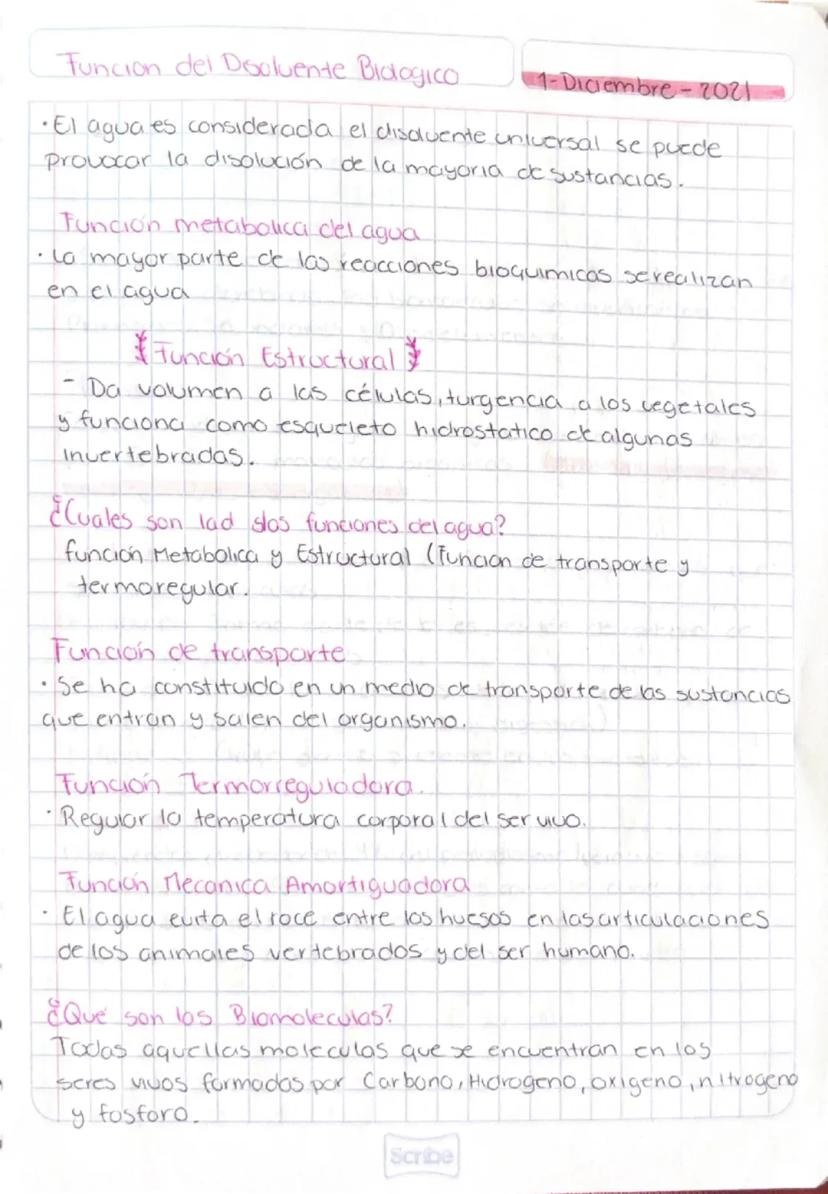 Funcion del Disolvente Biologico
1-Diciembre-2021
•El agua es considerada el disolvente universal se puede
provocar la disolución de la mayoria de sustancias.
Función metabolica del agua
•La mayor parte de las reacciones bioquimicas se realizan
en el agua
Función Estructural
- Da volumen a las células, turgencia a los vegetales
y funciona como esqueleto hidrostatico de algunas
invertebradas.
¿Cuales son lad slas funciones del agua?
función Metabolica y Estructural (Funcion de transporte y
termoregular.
Función de transporte
•Se ha constituido en un medio de transporte de las sustancias
que entran y salen del organismo.
Función Termorreguladora.
•Regular la temperatura corporal del ser vivo.
Función Mecanica Amortiguadora
•El agua evita el roce entre los huesos en las articulaciones
de los animales vertebrados y del ser humano.
¿Qué son las Biomoleculas?
Todas aquellas moleculas que se encuentran en los
seres vivos formadas por Carbono, Hidrogeno, oxigeno, nitrogeno
y fosforo.
Scribe